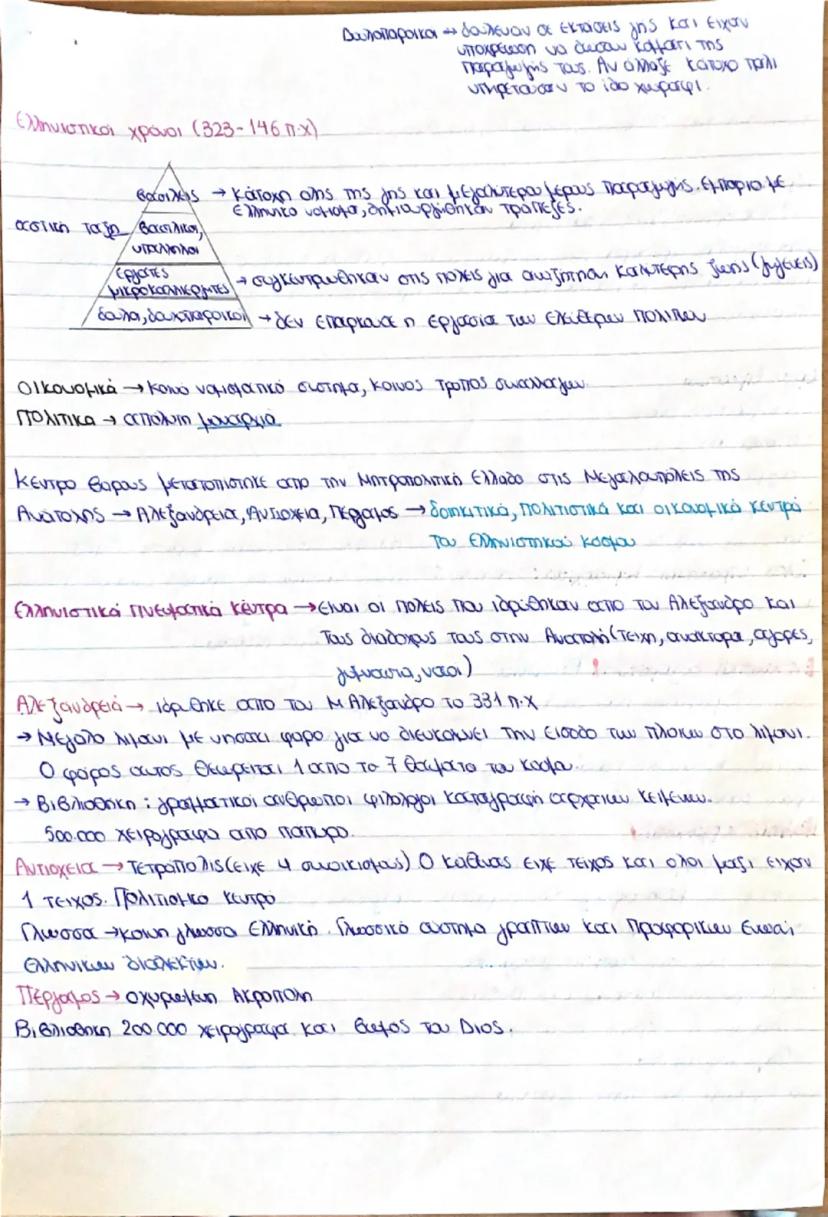 Δουλοπάροικοι → δούλευαν σε εκτάσεις γης και είχαν
υποχρέωση να δώσουν κομμάτι της
παραγωγής τους. Αν άλλαζε κάτοχο πάλι
υπηρετούσαν το ίδιο χωράφι.
Ελληνιστικοί χρόνοι (323-146 π.χ)
βασιλείς → κάτοχη όλης της γης και μεγαλύτερου μέρους παραγωγής. Εμπόριο με
ελληνικό νόμισμα, δημιουργήθηκαν τράπεζες.
αστική τάξη βασιλικοί,
υπάλληλοι
εργάτες
μικροκαλλιεργητές → συγκεντρώθηκαν στις πόλεις για αναζήτηση καλύτερης ζωής (γηγενείς)
δούλοι, δουλοπάροικοι → δεν επαρκούσε η εργασία των ελεύθερων πολιτών
Οικονομικά → κοινό νομισματικό σύστημα, κοινός τρόπος συναλλαγών.
Πολιτικά → απόλυτη μοναρχία.
Κέντρο βάρους μετατοπίστηκε από την Μητροπολιτική Ελλάδα στις Μεγαλουπόλεις της
Ανατολής → Αλεξάνδρεια, Αντιόχεια, Πέργαμος → διοικητικά, πολιτιστικά και οικονομικά κέντρα
του Ελληνιστικού κόσμου
Ελληνιστικά πνευματικά κέντρα → Είναι οι πόλεις που ιδρύθηκαν από τον Αλέξανδρο και
τους διαδόχους τους στην Ανατολή (τείχη, ανάκτορα, αγορές,
γυμνάσια, ναοί)
Αλεξάνδρειά → ιδρύθηκε από τον Μ Αλέξανδρο το 331 π.χ
→ Μεγάλο λιμάνι με νησάκι φάρο για να διευκολύνει την είσοδο των πλοίων στο λιμάνι.
Ο φάρος αυτός θεωρείται 1 από τα 7 θαύματα του κόσμου.
→ Βιβλιοθήκη : γραμματικοί άνθρωποι φιλόλογοι καταγραφή αρχαίων κειμένων.
500.000 χειρόγραφα από πάπυρο.
Αντιόχεια → Τετράπολις (είχε 4 συνοικισμούς) Ο καθένας είχε τείχος και όλοι μαζί είχαν
1 τείχος. Πολιτισμικό κέντρο
Γλώσσα → κοινή γλώσσα Ελληνική. Γλωσσικό σύστημα γραπτών και προφορικών
Ελληνικών διαλέκτων.
Πέργαμος → οχυρωμένη Ακρόπολη
Βιβλιοθήκη 200 000 χειρόγραφα και βωμός του Διός.